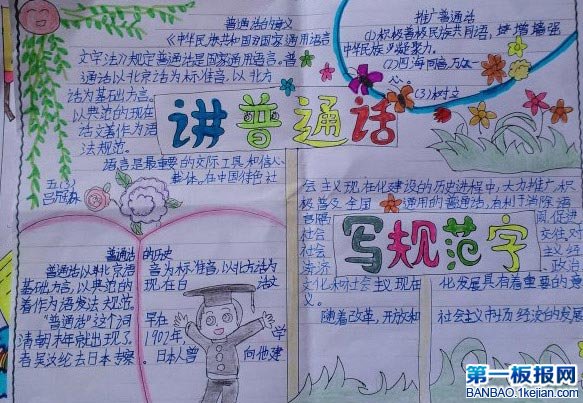 普通话的意义
《中华民族共和国国家通用语言
文字法》规定普通话是国家通用语言。普
通话以北京话为标准音,以北方
话为基础方言。
以典范的现在
语法规范。
语言是最重要的交际工具和信人
载体。在中国特色社
推广普通话
(1)积极普极民族共同语,
增强
中华民族凝聚力。
(2)四海同音,万众
一心。
(3)树文
讲普通话
五(3)
会主义现在化建设的历史进程中,大力推广,积
极普及全国通用的普通话,有利于消除语
言隔
社会
社会
促进
交往,对
主义经
政治
写规范字
文化和社会主义现在
化发展具有着重要的意
义。
随着改革,开放和
社会主义市场经济的发展
普通话的历史
普通话以北京语
音为标准音,以北方话为
基础方言,以典范的
现在白
话文
着作为语发法规范。
“普通话”这个词
早在
清朝末年就出现了。
1902年,
学
者吴汝纶去日本考察,
日本人曾
向他建
第一板报网
BANBAO.1kejian.com